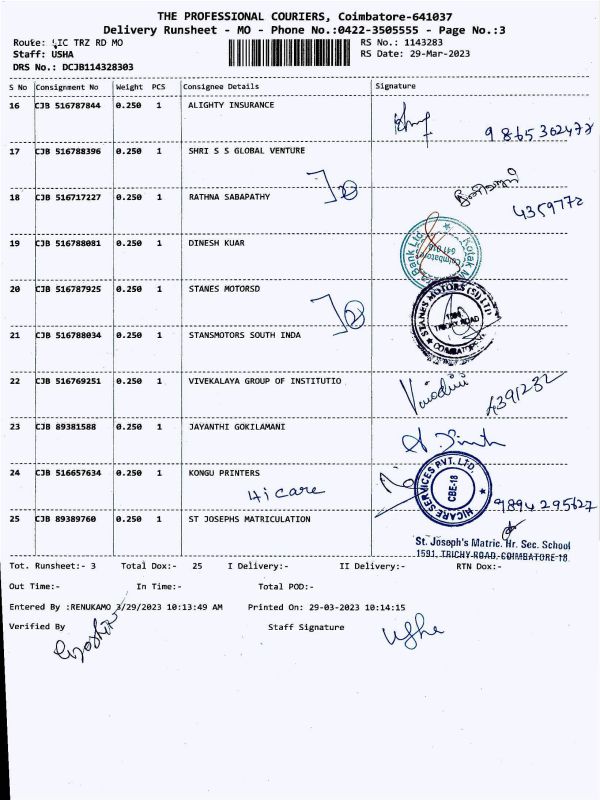 THE PROFESSIONAL COURIERS, Coimbatore-641037
Delivery Runsheet - MO - Phone No.:0422-3505555 - Page No.:3
Route: LIC TRZ RD MO RS No.: 1143283
Staff: USHA RS Date: 29-Mar-2023
DRS No.: DCJB114328303
S No Consignment No Weight PCS Consignee Details Signature
16 CJB 516787844 0.250 1 ALIGHTY INSURANCE
9865302472
17 CJB 516788396 0.250 1 SHRI S S GLOBAL VENTURE
18 CJB 516717227 0.250 1 RATHNA SABAPATHY
4359772
19 CJB 516788081 0.250 1 DINESH KUAR
Kotak M Bank Ltd Coimbatore 641 018
20 CJB 516787925 0.250 1 STANES MOTORSD
STANES MOTORS (SI) LTD
TRICHY ROAD
COIMBATORE
21 CJB 516788034 0.250 1 STANSMOTORS SOUTH INDA
22 CJB 516769251 0.250 1 VIVEKALAYA GROUP OF INSTITUTIO
4391232
23 CJB 89381588 0.250 1 JAYANTHI GOKILAMANI
24 CJB 516657634 0.250 1 KONGU PRINTERS
Hi care
HICARE SERVICES PVT. LTD.
CBE-18
9894295627
25 CJB 89389760 0.250 1 ST JOSEPHS MATRICULATION
St. Joseph's Matric. Hr. Sec. School
1591, TRICHY ROAD, COIMBATORE-18
Tot. Runsheet:- 3 Total Dox:- 25 I Delivery:- II Delivery:- RTN Dox:-
Out Time:- In Time:- Total POD:-
Entered By :RENUKAMO 3/29/2023 10:13:49 AM Printed On: 29-03-2023 10:14:15
Verified By Staff Signature
Usha